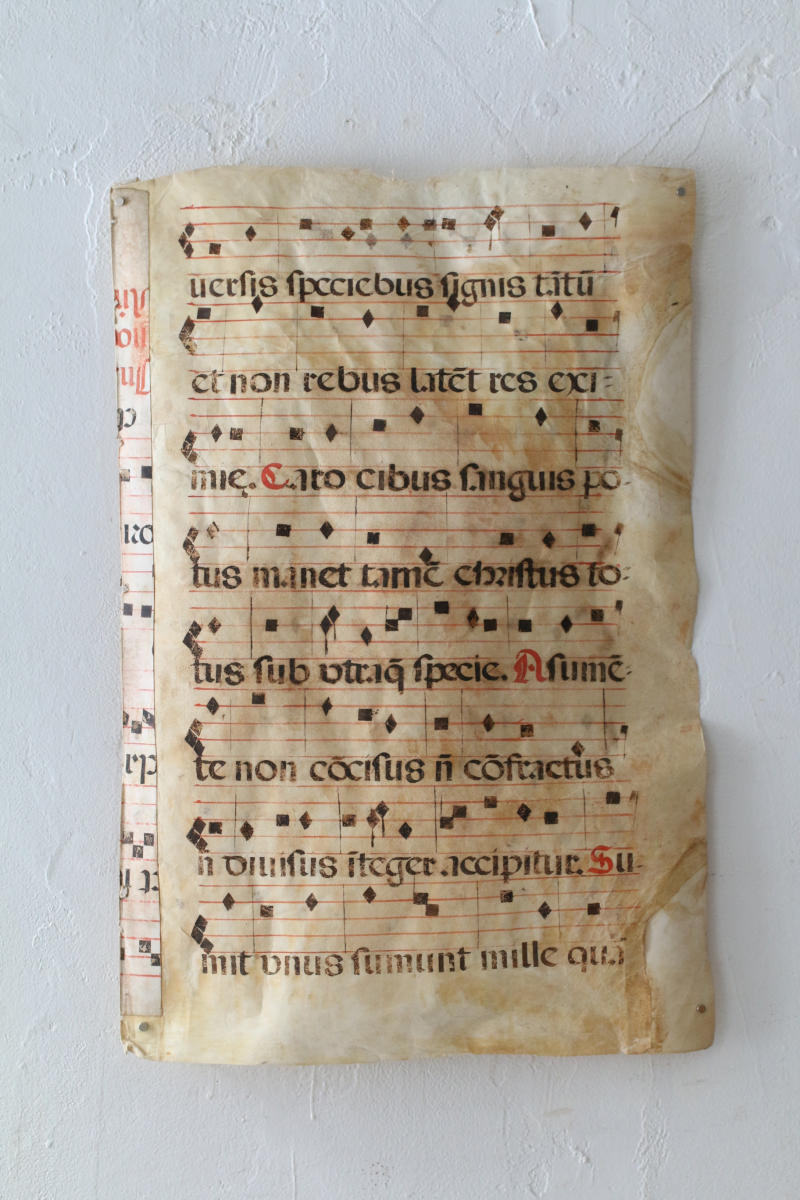 uersis speciebus signis tātū
et non rebus latēt res exi-
mię. Caro cibus sanguis po-
tus manet tamē christus to-
tus sub vtraq̄ specie. Asumē-
te non cōcisus n̄ cōfractus
n̄ diuisus īteger accipitur. Su-
mit vnus sumunt mille quā